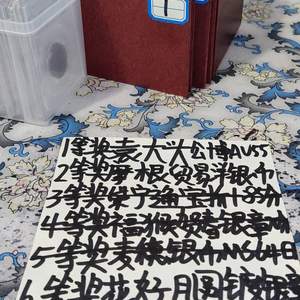 1等奖袁大头公博AU55
2等奖摩根贸易洋银币
3等奖崇宁通宝折十85分
4等奖福猴贺春银章
5等奖麦穗银币MS64
6等奖花好月圆